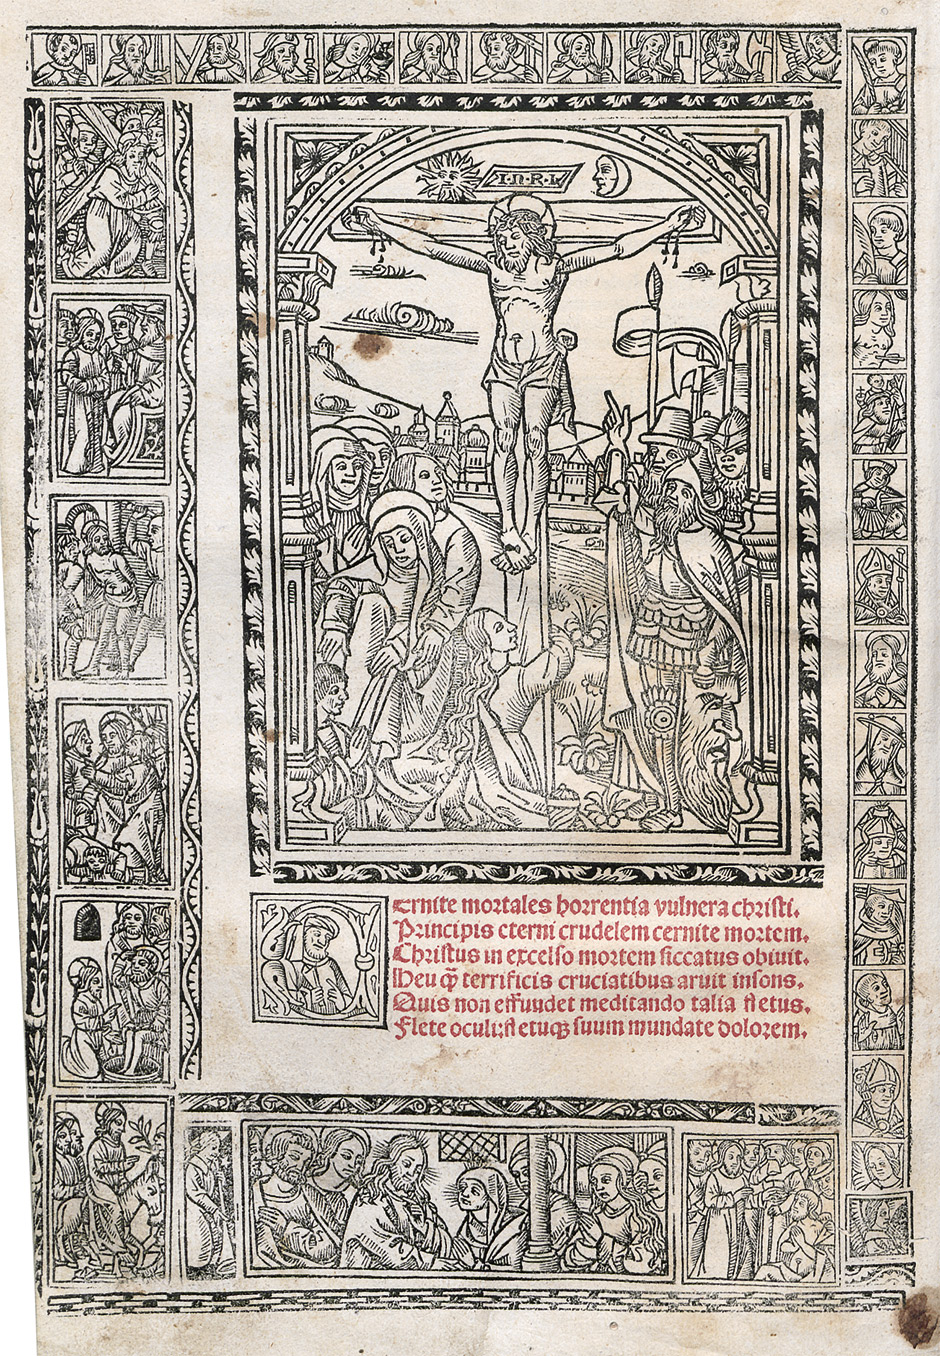 I.N.R.I.
Cernite mortales horrentia vulnera christi.
Principis eterni crudelem cernite mortem.
Christus in excelso mortem siccatus obiuit.
Heu q̄ʒ terrificis cruciatibus aruit insons.
Quis non effundet meditando talia fletus.
Flete oculi: fletuqʒ suum mundate dolorem.